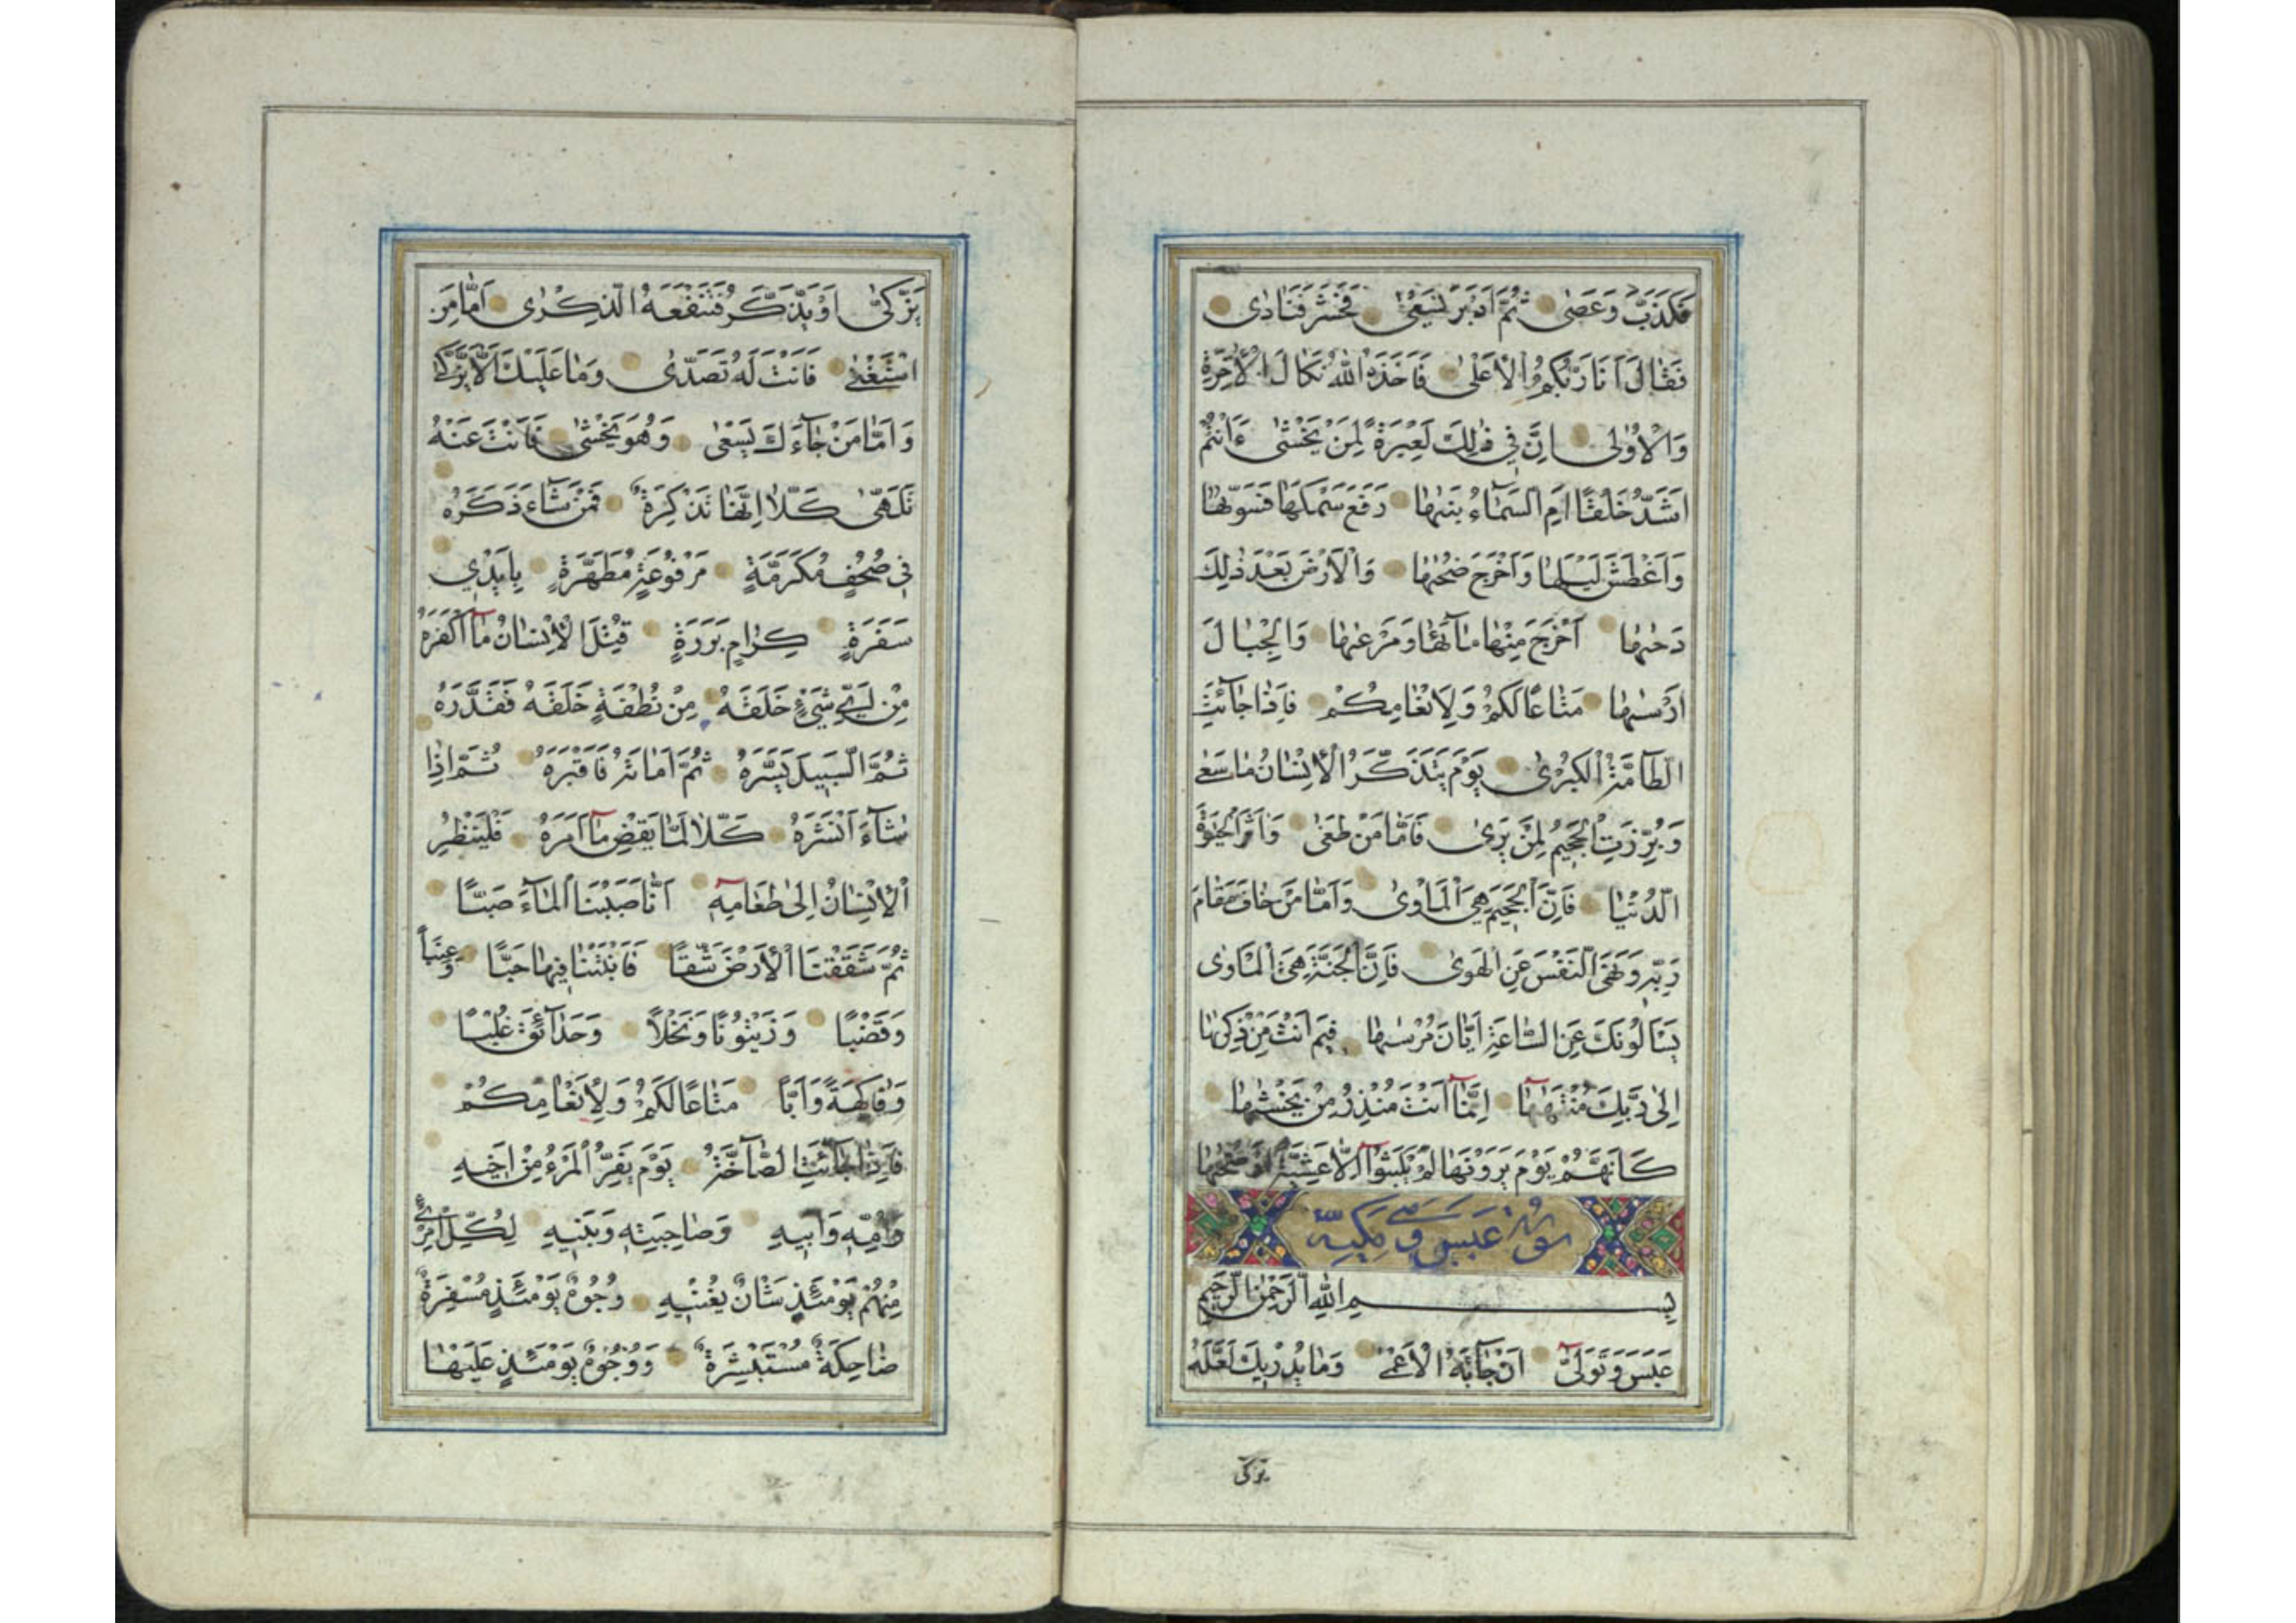 فَكَذَّبَ وَعَصٰى ثُمَّ اَدْبَرَ يَسْعٰى فَحَشَرَ فَنَادٰى
فَقَالَ اَنَا رَبُّكُمُ الْاَعْلٰى فَاَخَذَهُ اللّٰهُ نَكَالَ الْاٰخِرَةِ
وَالْاُوْلٰى اِنَّ فِي ذٰلِكَ لَعِبْرَةً لِمَنْ يَخْشٰى ءَاَنْتُمْ
اَشَدُّ خَلْقًا اَمِ السَّمَاءُ بَنٰيهَا رَفَعَ سَمْكَهَا فَسَوّٰيهَا
وَاَغْطَشَ لَيْلَهَا وَاَخْرَجَ ضُحٰيهَا وَالْاَرْضَ بَعْدَ ذٰلِكَ
دَحٰيهَا اَخْرَجَ مِنْهَا مَآئَهَا وَمَرْعٰيهَا وَالْجِبَالَ
اَرْسٰيهَا مَتَاعًا لَكُمْ وَلِاَنْعَامِكُمْ فَاِذَا جَآئَتِ
الطَّآمَّةُ الْكُبْرٰى يَوْمَ يَتَذَكَّرُ الْاِنْسَانُ مَا سَعٰى
وَبُرِّزَتِ الْجَحِيمُ لِمَنْ يَرٰى فَاَمَّا مَنْ طَغٰى وَاٰثَرَ الْحَيٰوةَ
الدُّنْيَا فَاِنَّ الْجَحِيمَ هِيَ الْمَاْوٰى وَاَمَّا مَنْ خَافَ مَقَامَ
رَبِّهِ وَنَهَى النَّفْسَ عَنِ الْهَوٰى فَاِنَّ الْجَنَّةَ هِيَ الْمَاْوٰى
يَسْاَلُونَكَ عَنِ السَّاعَةِ اَيَّانَ مُرْسٰيهَا فِيمَ اَنْتَ مِنْ ذِكْرٰيهَا
اِلٰى رَبِّكَ مُنْتَهٰيهَا اِنَّمَا اَنْتَ مُنْذِرُ مَنْ يَخْشٰيهَا
كَاَنَّهُمْ يَوْمَ يَرَوْنَهَا لَمْ يَلْبَثُوا اِلَّا عَشِيَّةً اَوْ ضُحٰيهَا
سورة عبس وهي مكية
بِسْمِ اللّٰهِ الرَّحْمٰنِ الرَّحِيمِ
عَبَسَ وَتَوَلّٰى اَنْ جَآئَهُ الْاَعْمٰى وَمَا يُدْرِيكَ لَعَلَّهُ
يزكى
يَزَّكّٰى اَوْ يَذَّكَّرُ فَتَنْفَعَهُ الذِّكْرٰى اَمَّا مَنِ
اسْتَغْنٰى فَاَنْتَ لَهُ تَصَدّٰى وَمَا عَلَيْكَ اَلَّا يَزَّكّٰى
وَاَمَّا مَنْ جَآءَكَ يَسْعٰى وَهُوَ يَخْشٰى فَاَنْتَ عَنْهُ
تَلَهّٰى كَلَّا اِنَّهَا تَذْكِرَةٌ فَمَنْ شَآءَ ذَكَرَهُ
فِي صُحُفٍ مُكَرَّمَةٍ مَرْفُوعَةٍ مُطَهَّرَةٍ بِاَيْدِي
سَفَرَةٍ كِرَامٍ بَرَرَةٍ قُتِلَ الْاِنْسَانُ مَا اَكْفَرَهُ
مِنْ اَيِّ شَيْءٍ خَلَقَهُ مِنْ نُطْفَةٍ خَلَقَهُ فَقَدَّرَهُ
ثُمَّ السَّبِيلَ يَسَّرَهُ ثُمَّ اَمَاتَهُ فَاَقْبَرَهُ ثُمَّ اِذَا
شَآءَ اَنْشَرَهُ كَلَّا لَمَّا يَقْضِ مَا اَمَرَهُ فَلْيَنْظُرِ
الْاِنْسَانُ اِلٰى طَعَامِهِ اَنَّا صَبَبْنَا الْمَآءَ صَبًّا
ثُمَّ شَقَقْنَا الْاَرْضَ شَقًّا فَاَنْبَتْنَا فِيهَا حَبًّا وَعِنَبًا
وَقَضْبًا وَزَيْتُونًا وَنَخْلًا وَحَدَآئِقَ غُلْبًا
وَفَاكِهَةً وَاَبًّا مَتَاعًا لَكُمْ وَلِاَنْعَامِكُمْ
فَاِذَا جَآئَتِ الصَّآخَّةُ يَوْمَ يَفِرُّ الْمَرْءُ مِنْ اَخِيهِ
وَاُمِّهِ وَاَبِيهِ وَصَاحِبَتِهِ وَبَنِيهِ لِكُلِّ امْرِئٍ
مِنْهُمْ يَوْمَئِذٍ شَاْنٌ يُغْنِيهِ وُجُوهٌ يَوْمَئِذٍ مُسْفِرَةٌ
ضَاحِكَةٌ مُسْتَبْشِرَةٌ وَوُجُوهٌ يَوْمَئِذٍ عَلَيْهَا